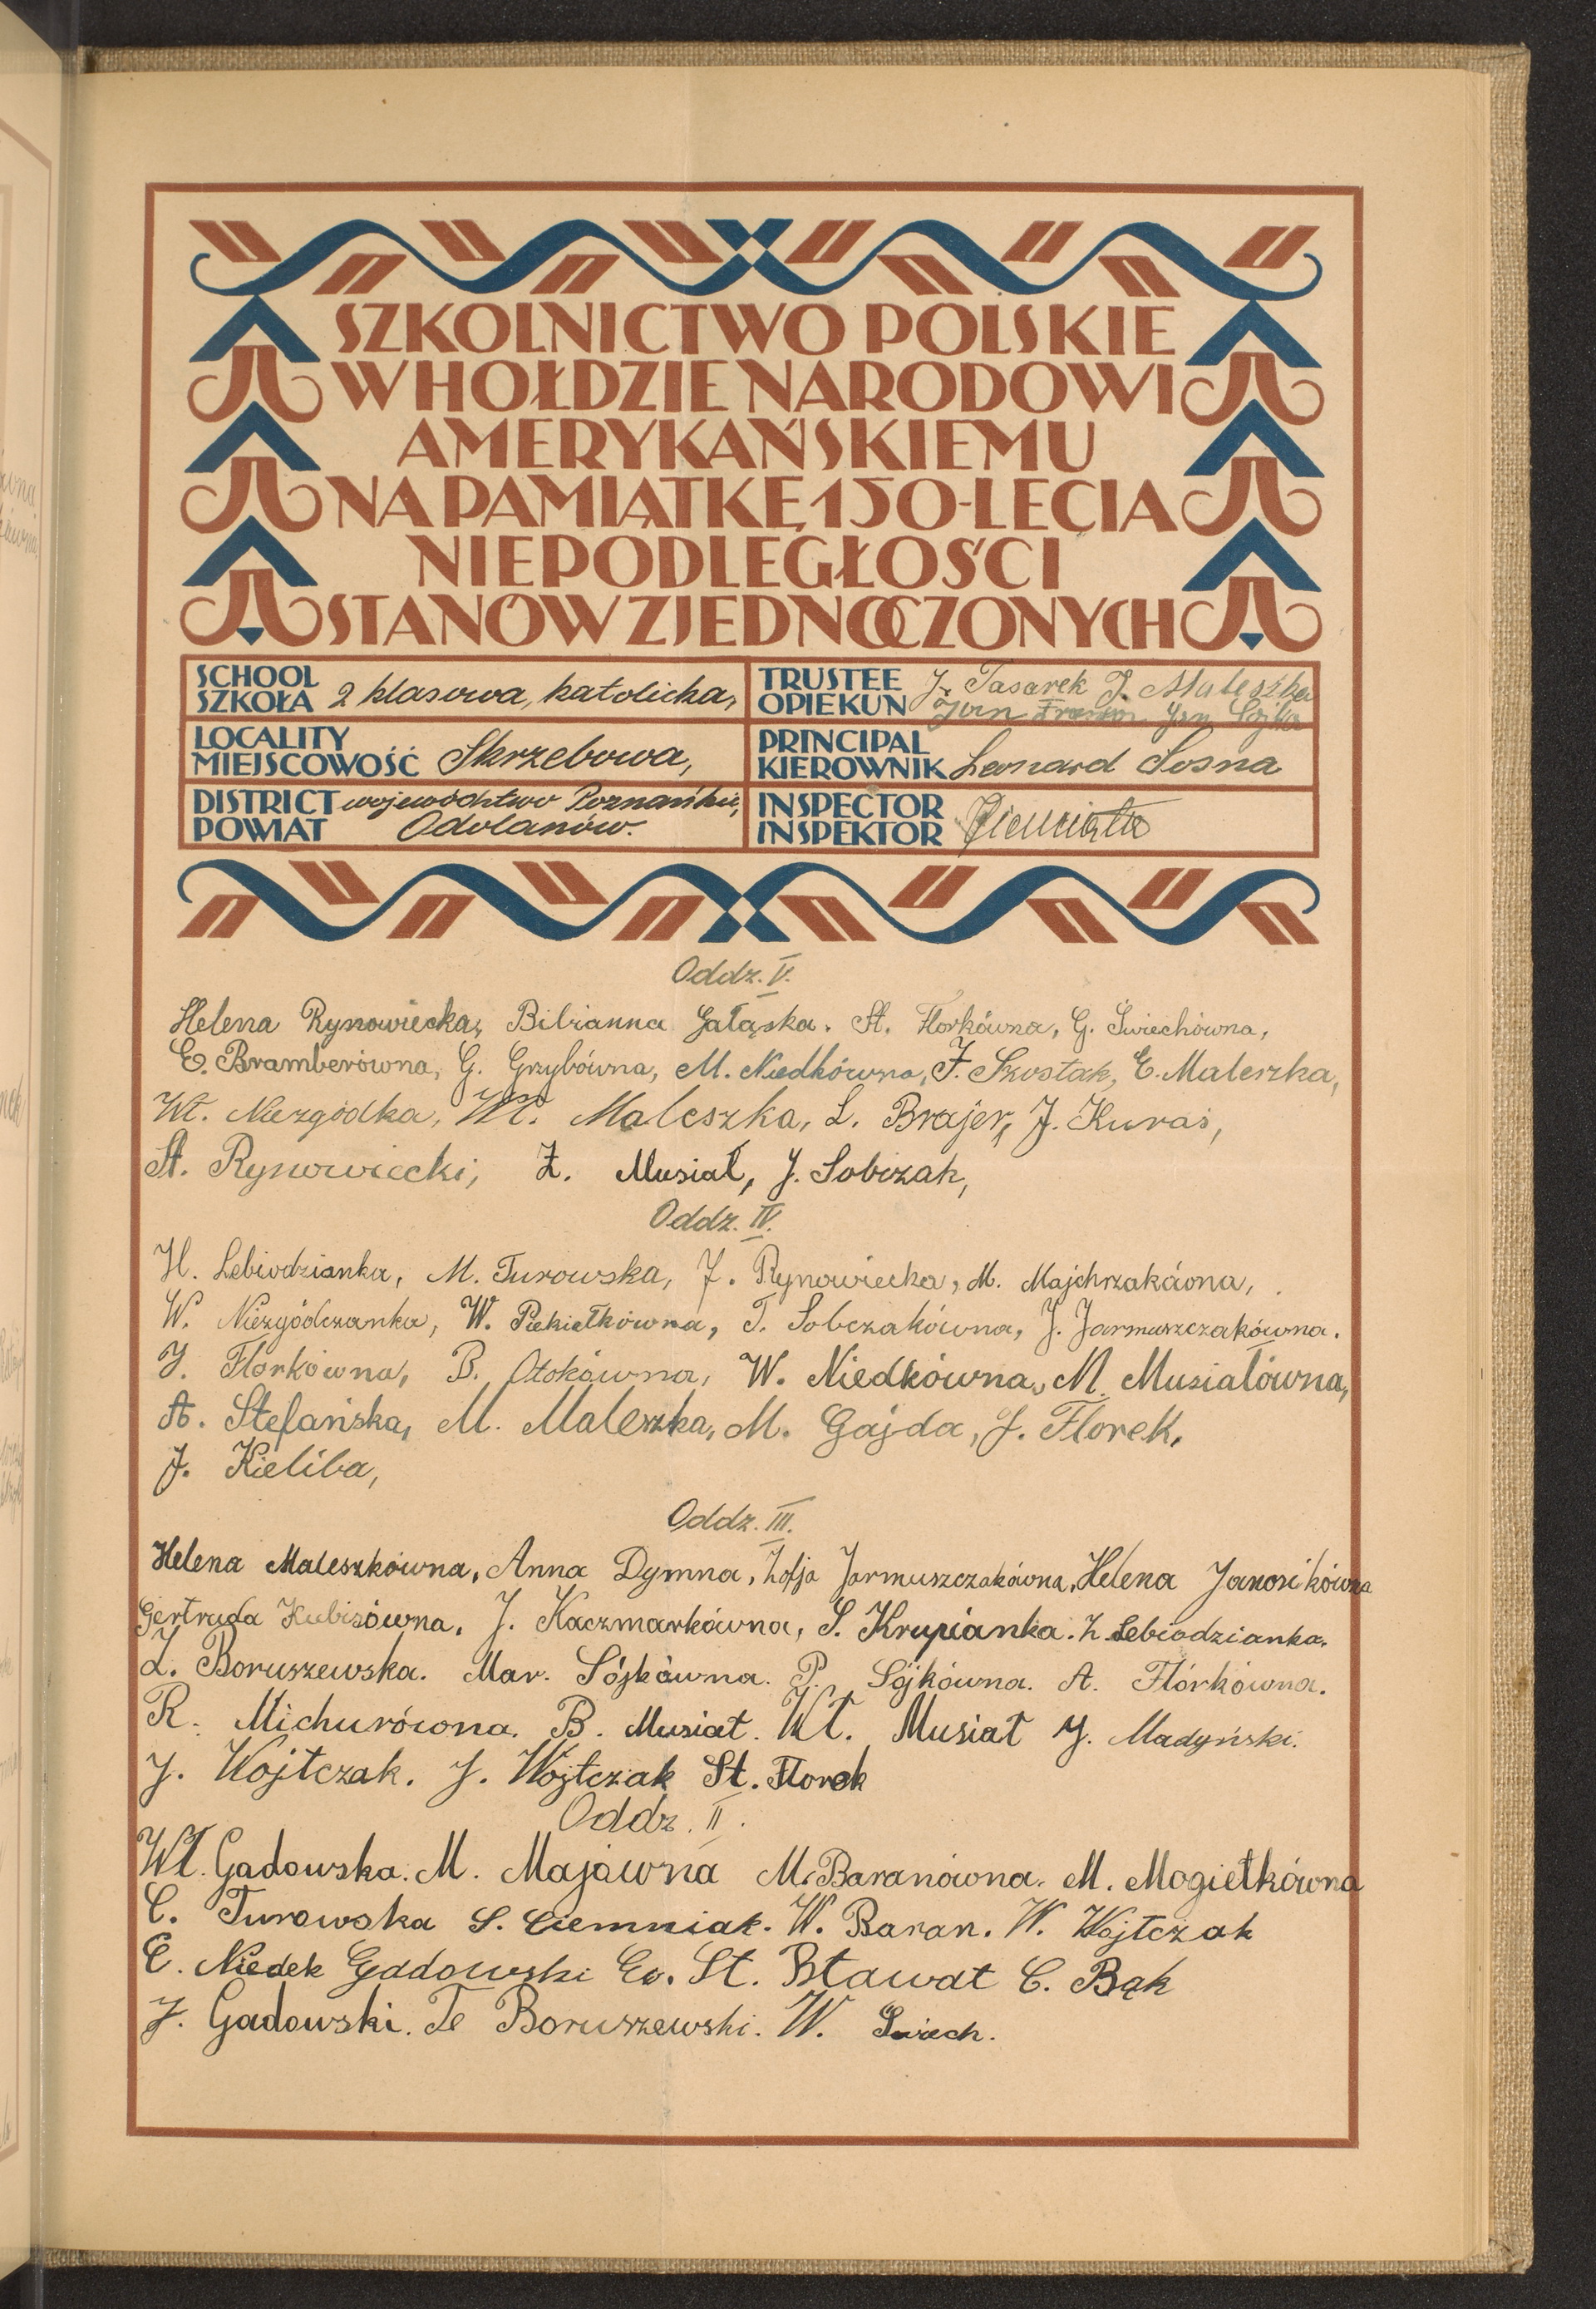 SZKOLNICTWO POLSKIE
W HOŁDZIE NARODOWI
AMERYKAŃSKIEMU
NA PAMIĄTKĘ 150-LECIA
NIEPODLEGŁOŚCI
STANÓW ZJEDNOCZONYCH
SCHOOL
SZKOŁA 2 klasowa, katolicka,
TRUSTEE
OPIEKUN J. Tasarek J. Maleszka
Jan Jan Sójka
LOCALITY
MIEJSCOWOŚĆ Skrzebowa,
PRINCIPAL
KIEROWNIK Leonard Sosna
DISTRICT województwo Poznańskie,
POWIAT Odolanów.
INSPECTOR
INSPEKTOR
Oddz. V.
Helena Rynowiecka, Bibianna Gałąska. St. Florkówna, G. Świechówna,
E. Bramberówna, G. Grzybówna, M. Niedkówna, F. Szostak, E. Maleszka,
Wł. Niezgódka, Wł. Maleszka, L. Brajer, J. Kuraś,
St. Rynowiecki, Z. Musiał, J. Sobczak,
Oddz. IV.
H. Lebiodzianka, M. Turowska, J. Rynowiecka, M. Majchrzakówna,
W. Niezgódczanka, W. Piekiełkówna, T. Sobczakówna, J. Jarmuszczakówna.
J. Florkówna, B. Otokówna, W. Niedkówna, M. Musiałówna,
A. Stefańska, M. Maleszka, M. Gajda, J. Florek,
J. Kieliba,
Oddz. III.
Helena Maleszkówna, Anna Dymna, Zofja Jarmuszczakówna, Helena Janosikówna
Gertruda Kubisówna. J. Kaczmarkówna, S. Krupianka. Z. Lebiodzianka.
L. Boruszewska. Mar. Sójkówna. P. Sójkówna. A. Flórkówna.
R. Michurówna. B. Musiał. Wł. Musiał J. Madyński.
J. Wojtczak. J. Wojtczak St. Florek
Oddz. II.
Wł. Gadowska. M. Majówna M. Baranówna. M. Mogiełkówna
C. Turowska S. Ciemniak. W. Baran. W. Wojtczak
C. Niedek Gadowski Ed. St. Bławat C. Bąk
J. Gadowski. Te Boruszewski. W. Świech.